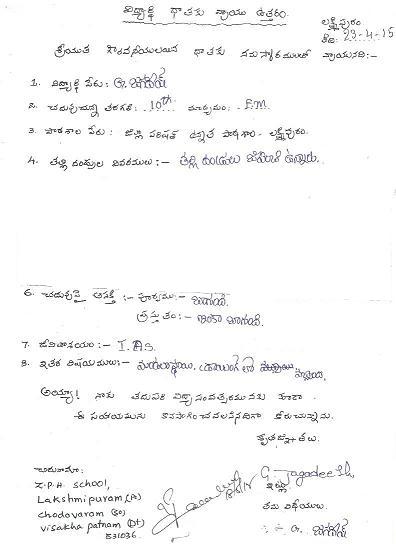 విద్యార్థి దాతకు వ్రాయు ఉత్తరం.
లక్ష్మీపురం
తేది: 23-4-15
శ్రీయుత గౌరవనీయులయిన దాతకు నమస్కారములతో వ్రాయునది:-
1. విద్యార్థి పేరు: G. జగదీష్
2. చదువుచున్న తరగతి: 10th మాధ్యమం: E.M.
3. పాఠశాల పేరు: జిల్లా పరిషత్ ఉన్నత పాఠశాల- లక్ష్మీపురం.
4. తల్లి దండ్రుల వివరములు:- తల్లి దండ్రులు ఉన్నారు.
6. చదువుపై ఆసక్తి :- పూర్వము:- బాగుంది.
ప్రస్తుతం:- ఇంకా బాగుంది.
7. జీవితాశయం:- I.A.S.
8. ఇతర విషయములు:-
అయ్యా! నాకు తదుపరి విద్యా సంవత్సరమునకు కూడా
ఈ సహాయమును కొనసాగించవలసినదిగా కోరుచున్నాను.
కృతజ్ఞతలు.
చిరునామా:
Z.P.H. School,
Lakshmipuram (P)
chodavaram (SO)
visakha patnam (Dt)
531036.
G. Jagadeesh
ఇట్లు
తమ విధేయులు.
G. జగదీష్